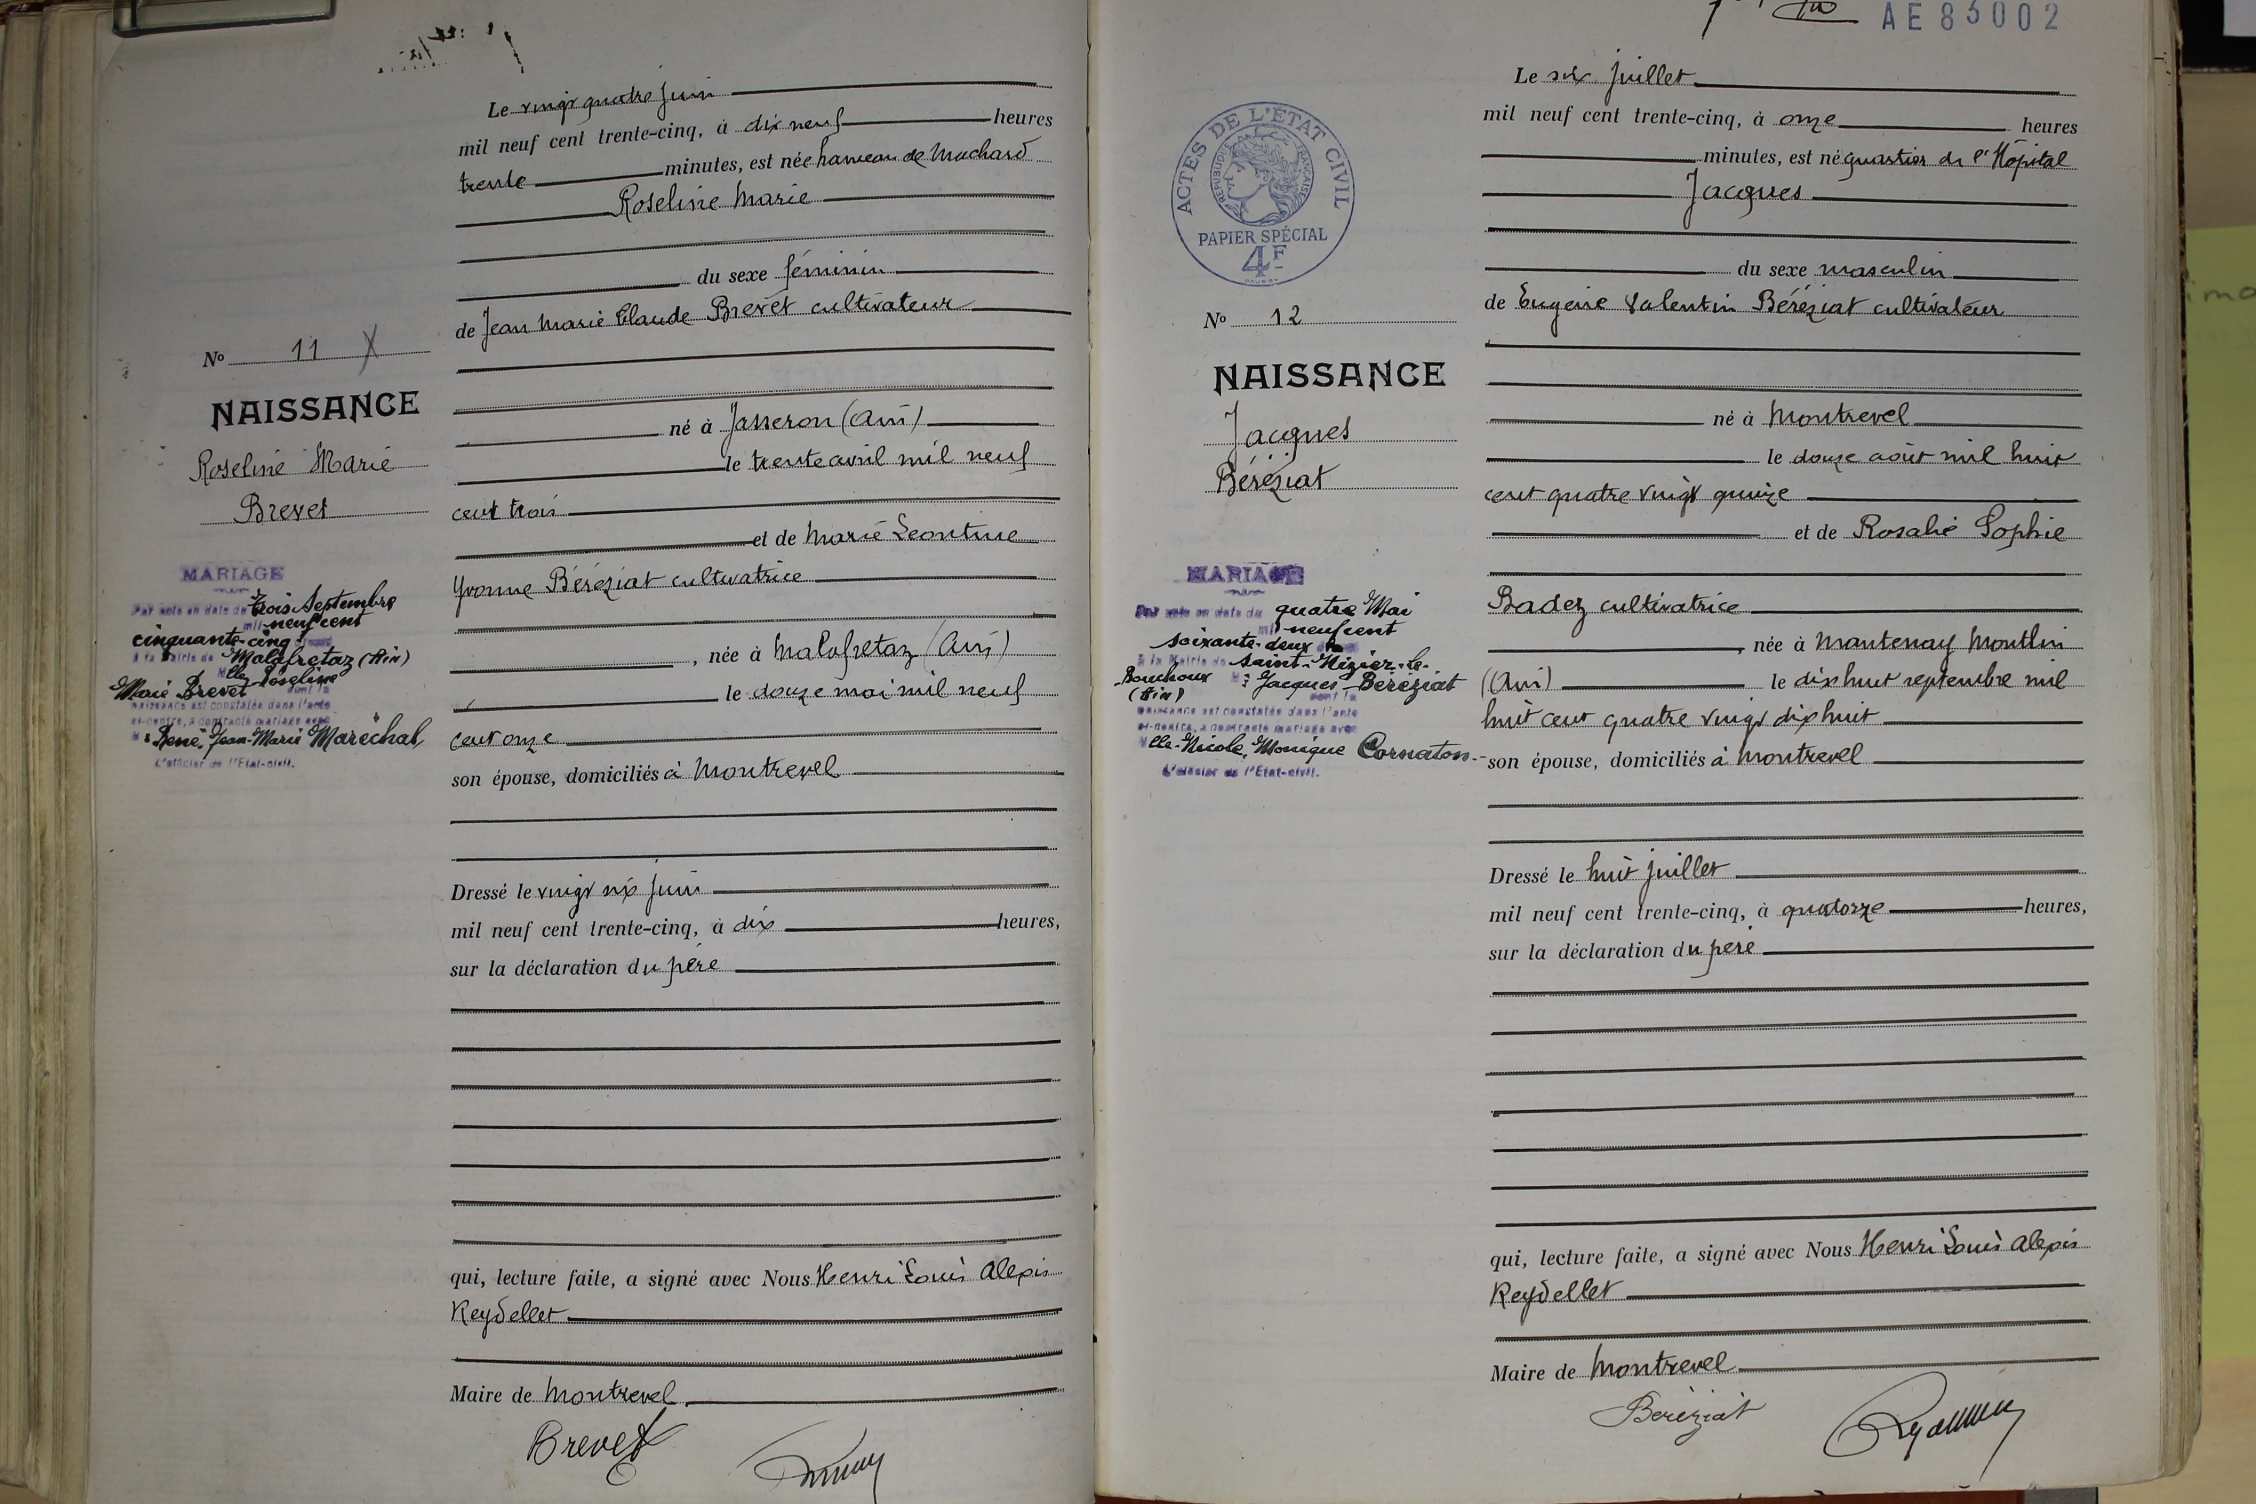 Le vingt quatre juin
mil neuf cent trente-cinq, à dix neuf heures
trente minutes, est née hameau de Machard
Roseline Marie
du sexe féminin
de Jean Marie Claude Brevet cultivateur
né à Jasseron (Ain)
le trente avril mil neuf
cent trois
et de Marie Leontine
Yvonne Béréziat cultivatrice
, née à Malafretaz (Ain)
le douze mai mil neuf
cent onze
son épouse, domiciliés à Montrevel
Dressé le vingt six juin
mil neuf cent trente-cinq, à dix heures,
sur la déclaration du père
qui, lecture faite, a signé avec Nous Henri Louis Alexis
Reydellet
Maire de Montrevel
Brevet
No 11 X
NAISSANCE
Roseline Marie
Brevet
MARIAGE
Par acte en date du trois Septembre
mil neuf cent
cinquante-cinq
à la Mairie de Malafretaz (Ain)
Mlle Roseline
Marie Brevet dont la
naissance est constatée dans l'acte
ci-contre, a contracté mariage avec
M: René, Jean-Marie Maréchal
L'officier de l'Etat-civil.
AE 83002
Le six juillet
mil neuf cent trente-cinq, à onze heures
minutes, est né quartier de l'Hôpital
Jacques
du sexe masculin
de Eugène Valentin Béréziat cultivateur
né à Montrevel
le douze août mil huit
cent quatre vingt quinze
et de Rosalie Sophie
Badez cultivatrice
, née à Mantenay Montlin
(Ain) le dix huit septembre mil
huit cent quatre vingt dix huit
son épouse, domiciliés à Montrevel
Dressé le huit juillet
mil neuf cent trente-cinq, à quatorze heures,
sur la déclaration du père
qui, lecture faite, a signé avec Nous Henri Louis Alexis
Reydellet
Maire de Montrevel
Béréziat
ACTES DE L'ÉTAT CIVIL
RÉPUBLIQUE FRANÇAISE
PAPIER SPÉCIAL
4F
No 12
NAISSANCE
Jacques
Béréziat
MARIAGE
Par acte en date du quatre Mai
mil neuf cent
soixante-deux
à la Mairie de Saint-Nizier-le-
Bouchoux M: Jacques Béréziat
(Ain) dont la
naissance est constatée dans l'acte
ci-contre, a contracté mariage avec
Mlle Nicole, Monique Cornaton.-
L'officier de l'Etat-civil.